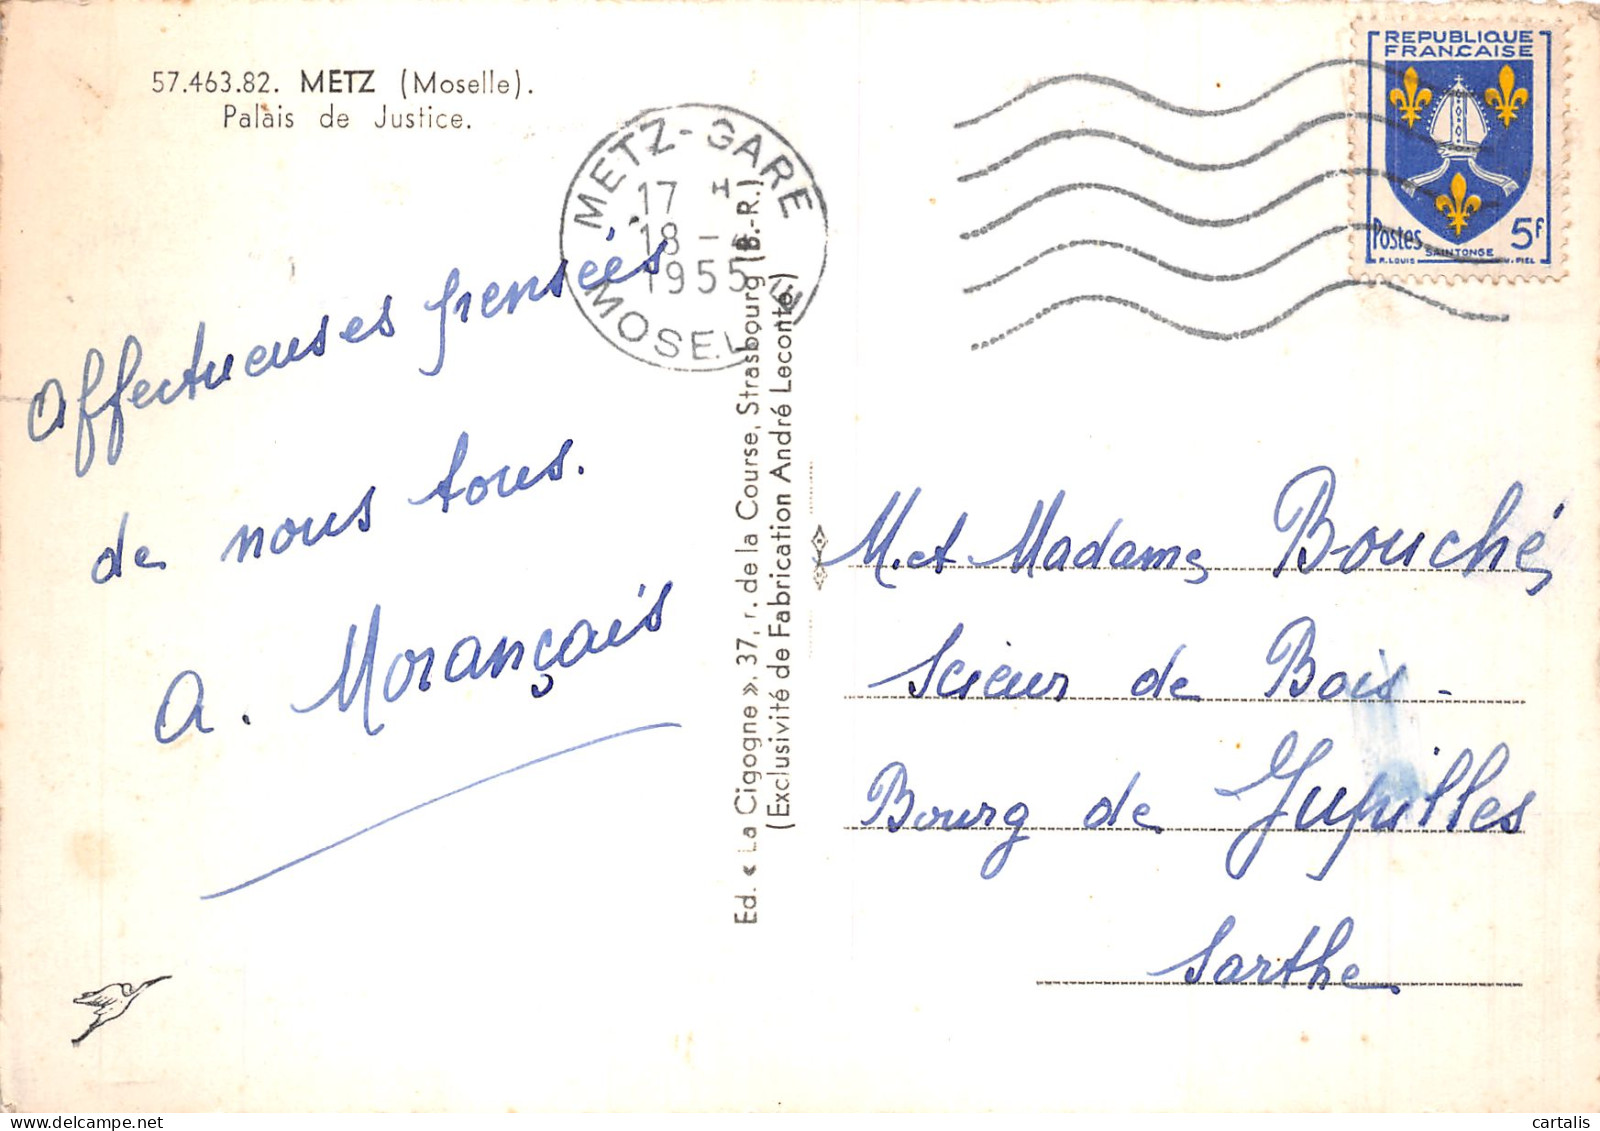 57.463.82. METZ (Moselle).
Palais de Justice.
METZ-GARE
17 H
18 - 4
1955
MOSELLE
REPUBLIQUE
FRANÇAISE
Postes 5F
SAINTONGE
R. LOUIS V. PIEL
Affectueuses pensées
de nous tous.
A. Morançais
Ed. « La Cigogne ». 37, r. de la Course, Strasbourg (B.-R.)
(Exclusivité de Fabrication André Leconte)
M. et Madame Bouché
Scieur de Bois -
Bourg de Jupilles
Sarthe
cartalis